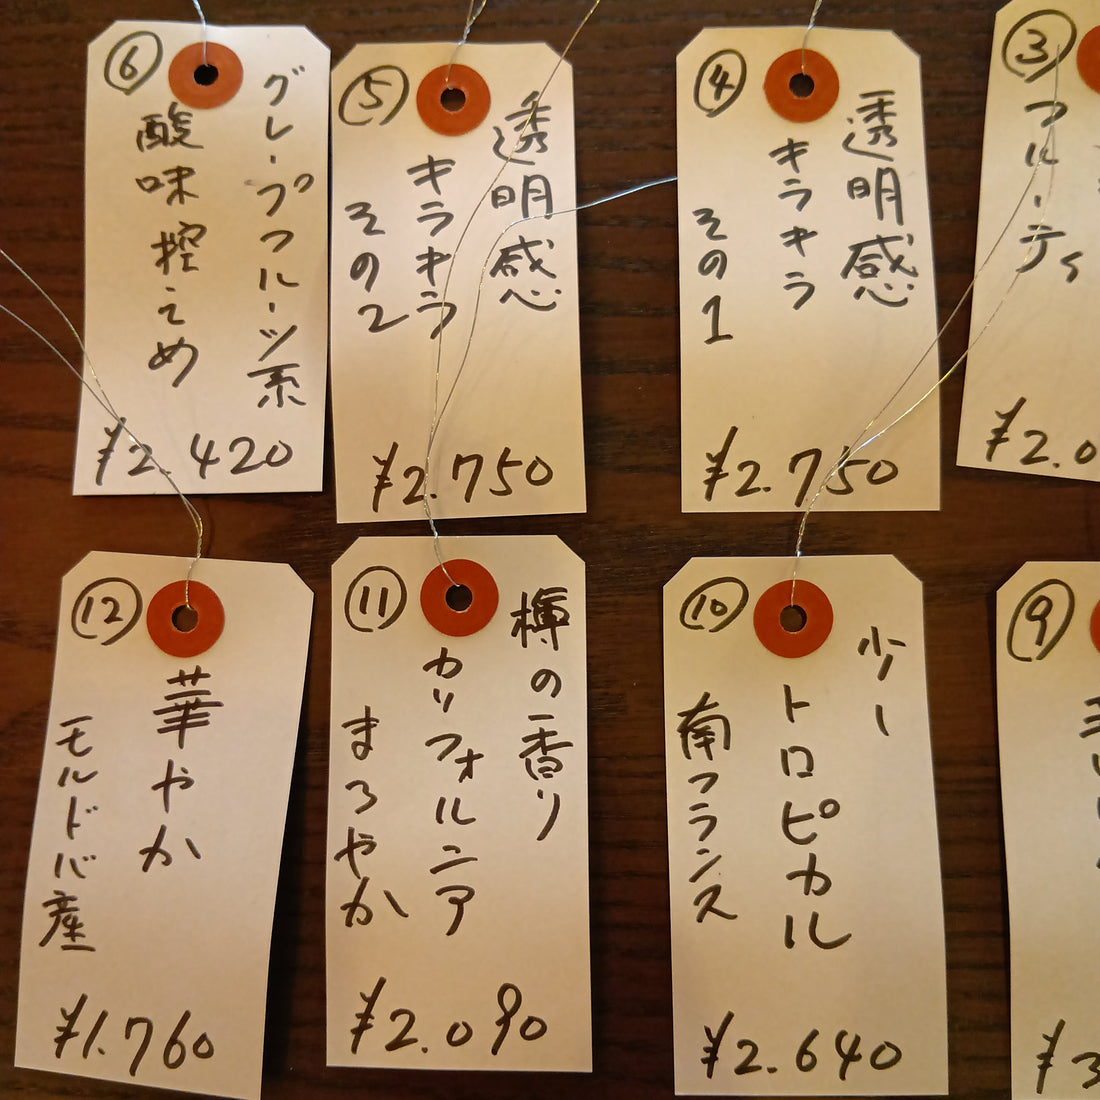 ⑥
グレープフルーツ系
酸味控えめ
¥2.420
⑤
透明感
キラキラ
その2
¥2.750
④
透明感
キラキラ
その1
¥2.750
③
フルーティ
¥2.0
⑫
華やか
モルドバ産
¥1.760
⑪
樽の香り
カリフォルニア
まろやか
¥2.090
⑩
少ー
トロピカル
南フランス
¥2.640
⑨
¥3